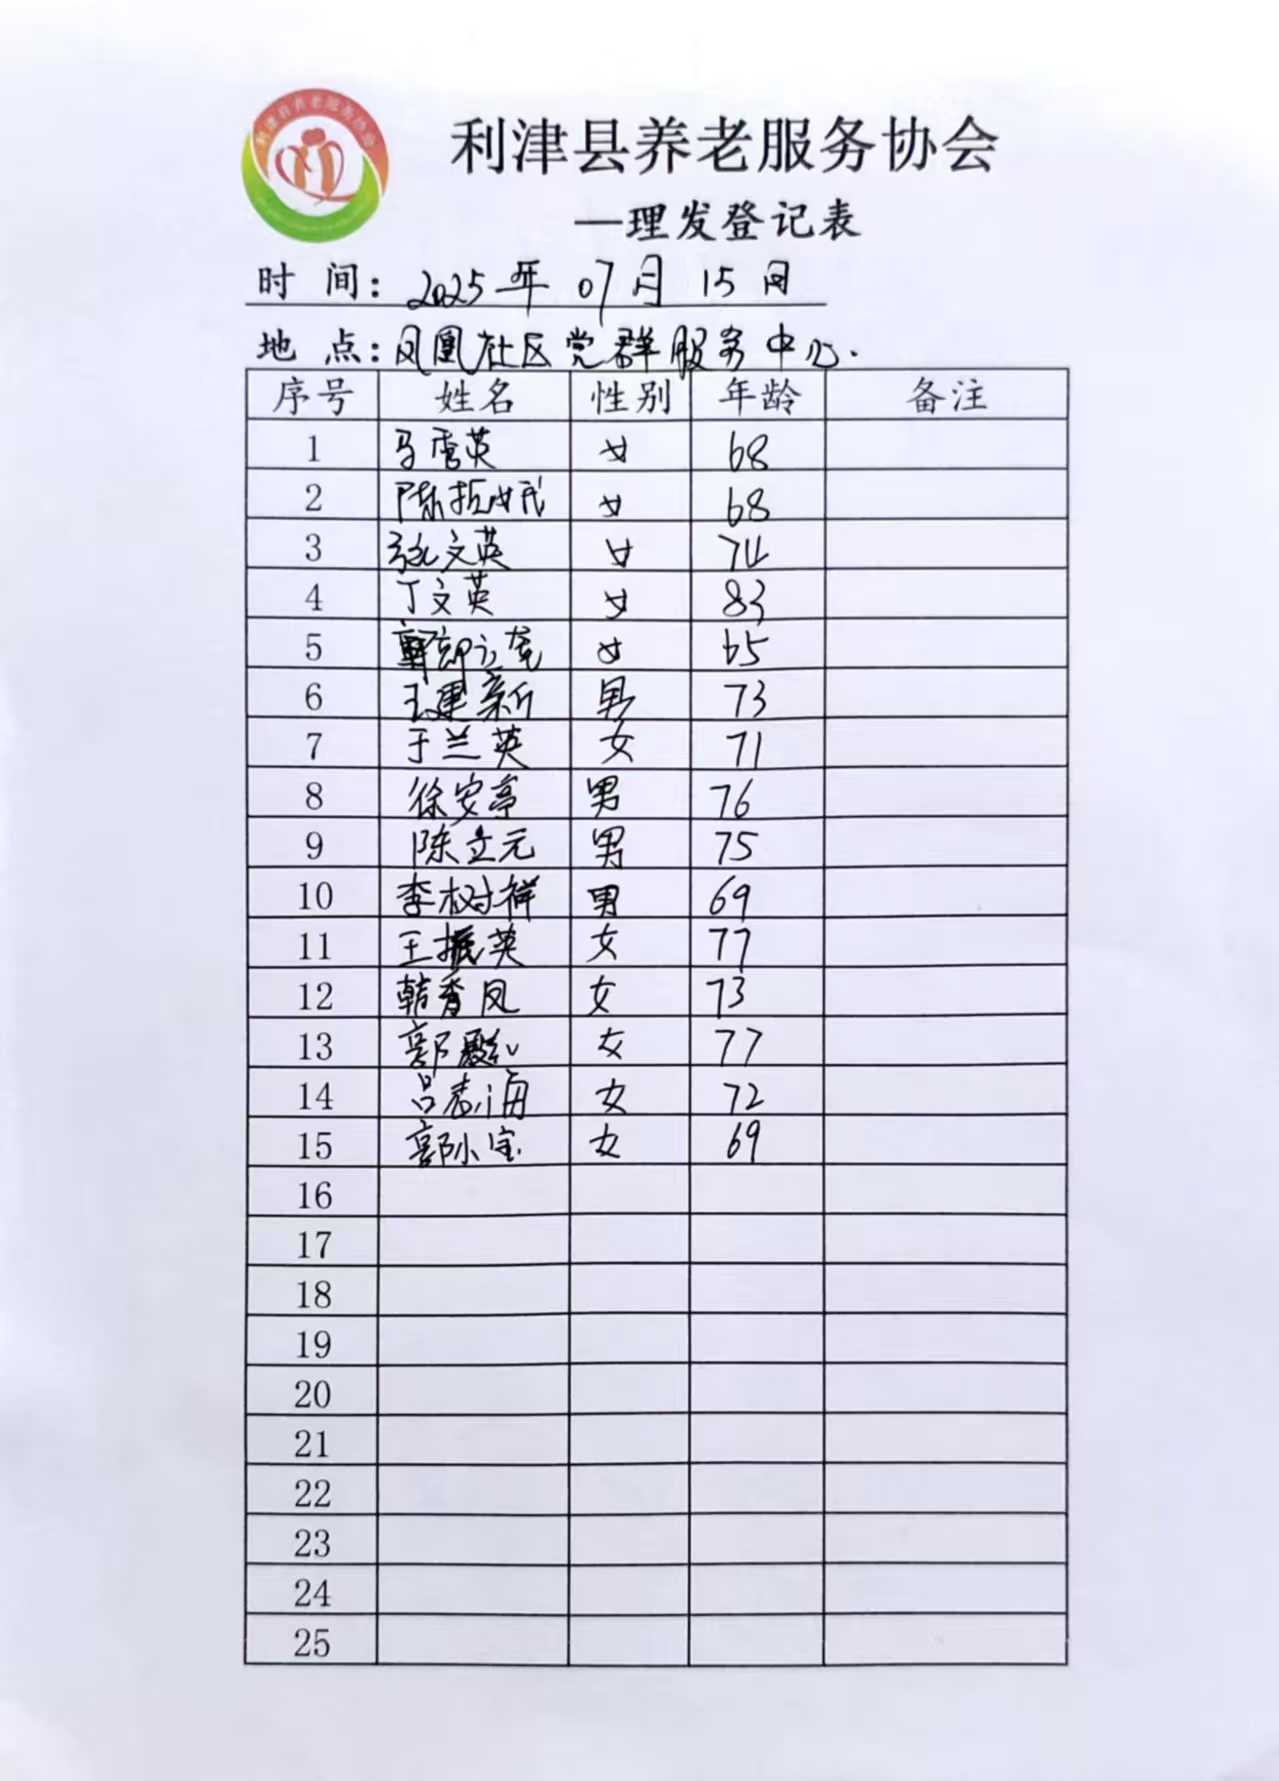 利津县养老服务协会
利津县养老服务协会
—理发登记表
时 间: 2025 年 07 月 15 日
地 点: 凤凰社区党群服务中心.
序号 姓名 性别 年龄 备注
1 马秀英 女 68
2 陈振 女 68
3 张文英 女 74
4 丁文英 女 83
5 女 65
6 王建新 男 73
7 于兰英 女 71
8 徐安亭 男 76
9 陈立元 男 75
10 李树祥 男 69
11 王振英 女 77
12 韩秀凤 女 73
13 郭 女 77
14 吕海 女 72
15 郭小宝 女 69
16
17
18
19
20
21
22
23
24
25